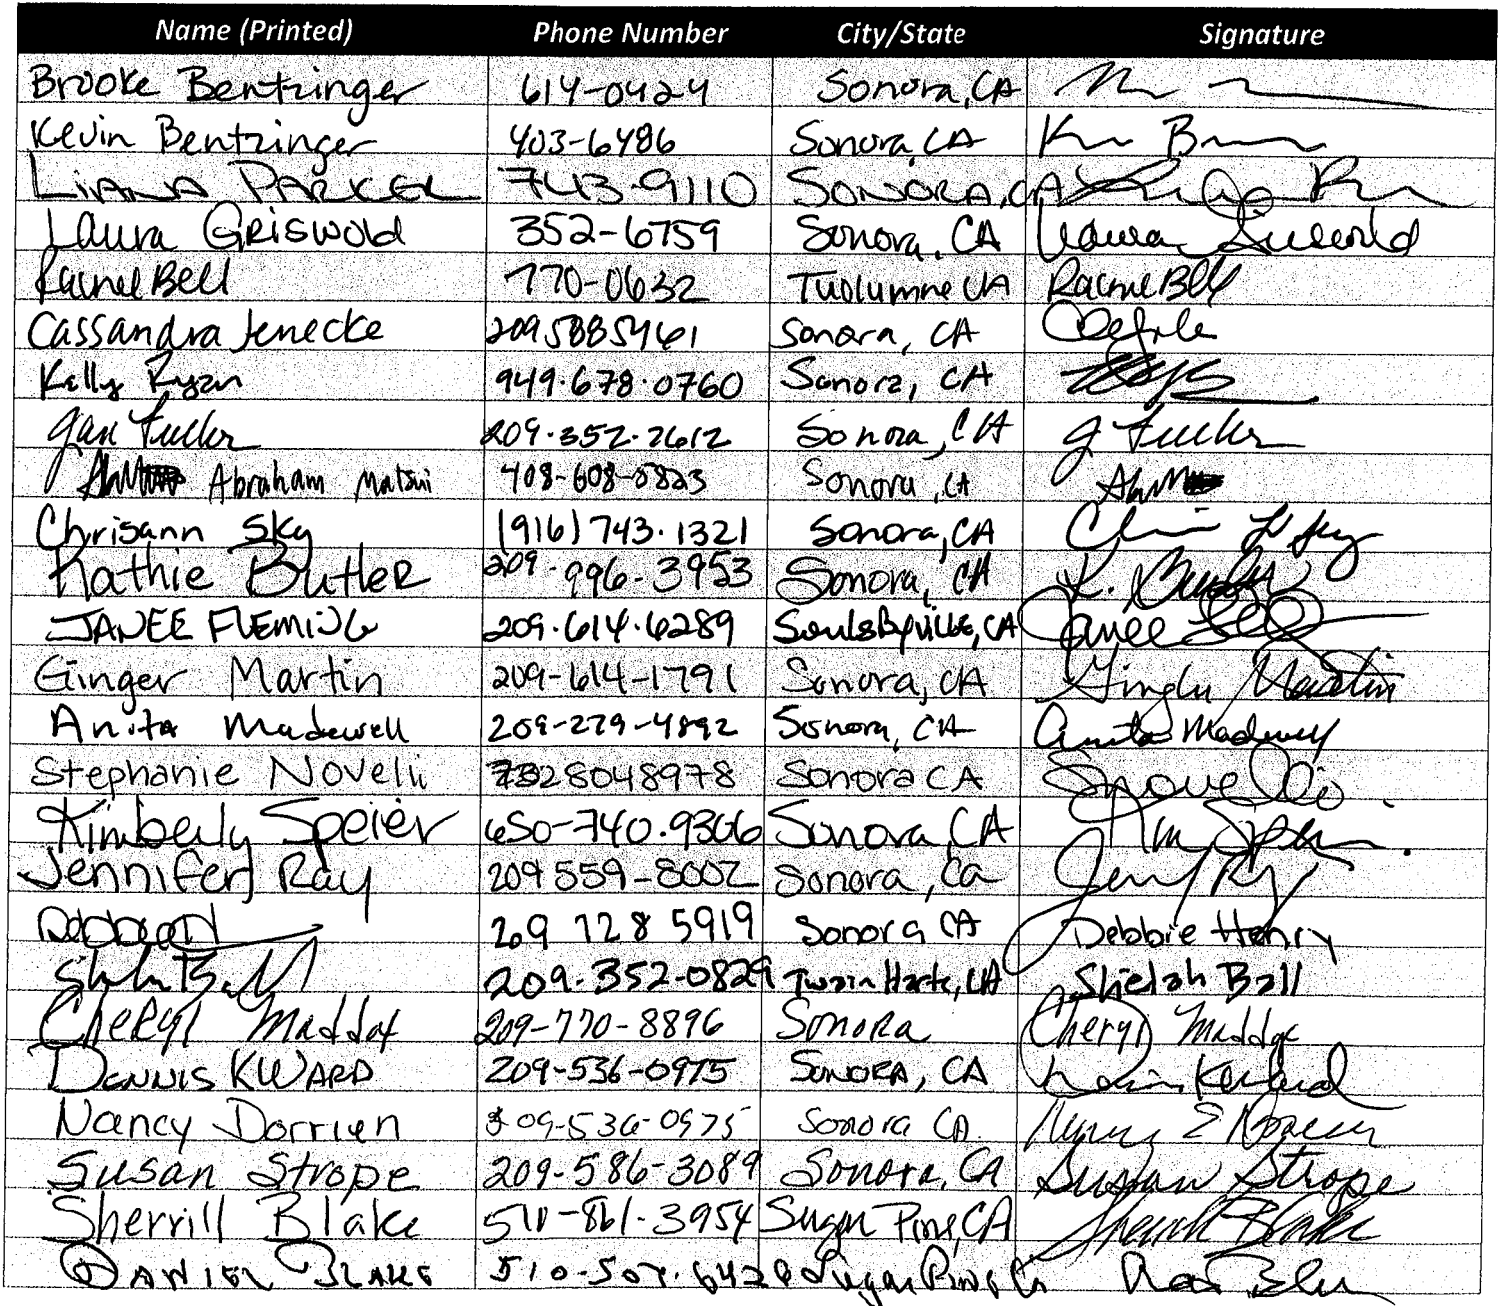 Name (Printed) Phone Number City/State Signature
Brooke Bentzinger 614-0424 Sonora, CA
Kevin Bentzinger 403-6486 Sonora, CA
LIANA PARKER 743-9110 SONORA, CA
Laura GRISWOLD 352-6759 Sonora, CA Laura Griswold
Rachel Bell 770-0632 Tuolumne CA Rachel Bell
Cassandra Jenecke 2095885461 Sonora, CA
Kelly Ryan 949.678.0760 Sonora, CA
Jan Fuller 209.352.2612 Sonora, CA J Fuller
Abraham Matsui 408-608-0823 Sonora, CA
Chrisann Sky (916) 743.1321 Sonora, CA
Kathie Butler 209-996-3953 Sonora, CA K. Butler
JANEE FLEMING 209.614.6289 Soulsbyville, CA Janee
Ginger Martin 209-614-1791 Sonora, CA Ginger Martin
Anita Madewell 209-279-4892 Sonora, CA Anita Madewell
Stephanie Novelli 7328048978 Sonora CA SNovelli
Kimberly Speier 650-740.9306 Sonora, CA Kim Speier
Jennifer J Ray 209 559-8002 Sonora, Ca
209 728 5919 Sonora CA Debbie Henry
209-352-0829 Twain Harte, CA Shielah Ball
Cheryl Maddox 209-770-8896 Sonora Cheryl Maddox
DENNIS KWARD 209-536-0975 SONORA, CA
Nancy Dorrien 209-536-0975 Sonora CA Nancy E Dorrien
Susan Strope 209-586-3089 Sonora, CA Susan Strope
Sherrill Blake 510-861-3954 Sugar Pine, CA Sherrill Blake
DANIEL BLAKE Sugar Pine Ca